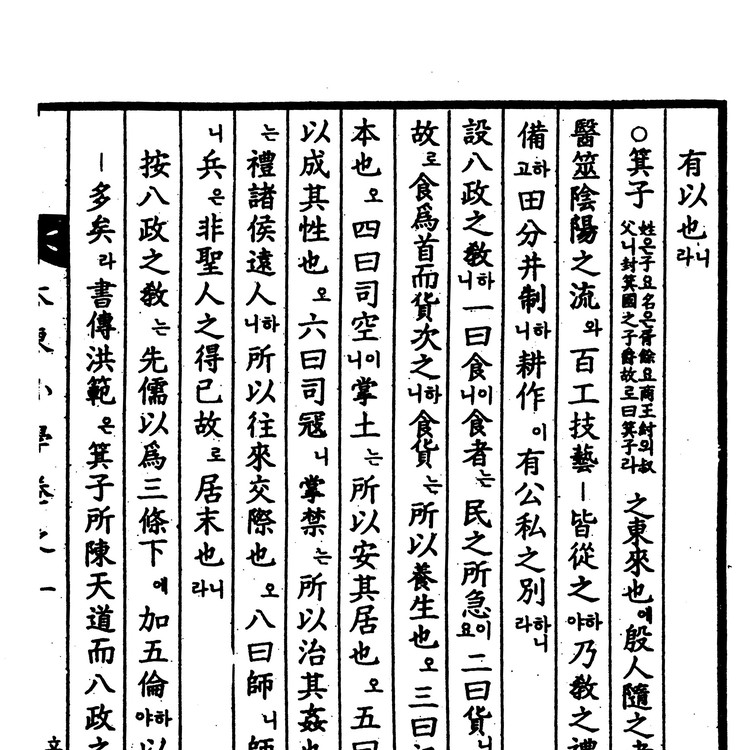 有以也라니
○箕子姓은子요名은胥餘요商王紂의叔父니封箕國之子爵故로曰箕子라 之東來也에殷人隨之者
醫筮陰陽之流와百工技藝ㅣ皆從之하야乃敎之禮
備하고田分井制하니耕作이有公私之別하니라
設八政之敎하니一曰食이니食者는民之所急이요二曰貨니
故로食爲首而貨次之하니食貨는所以養生也오三曰
本也오四曰司空이니掌土는所以安其居也오五曰
以成其性也오六曰司寇니掌禁는所以治其姦也
는禮諸侯遠人하니所以往來交際也오八曰師니師
니兵은非聖人之得已故로居末也라니
按八政之敎는先儒以爲三條下에加五倫하야以
ㅣ多矣라書傳洪範은箕子所陳天道而八政之
東小學卷之一